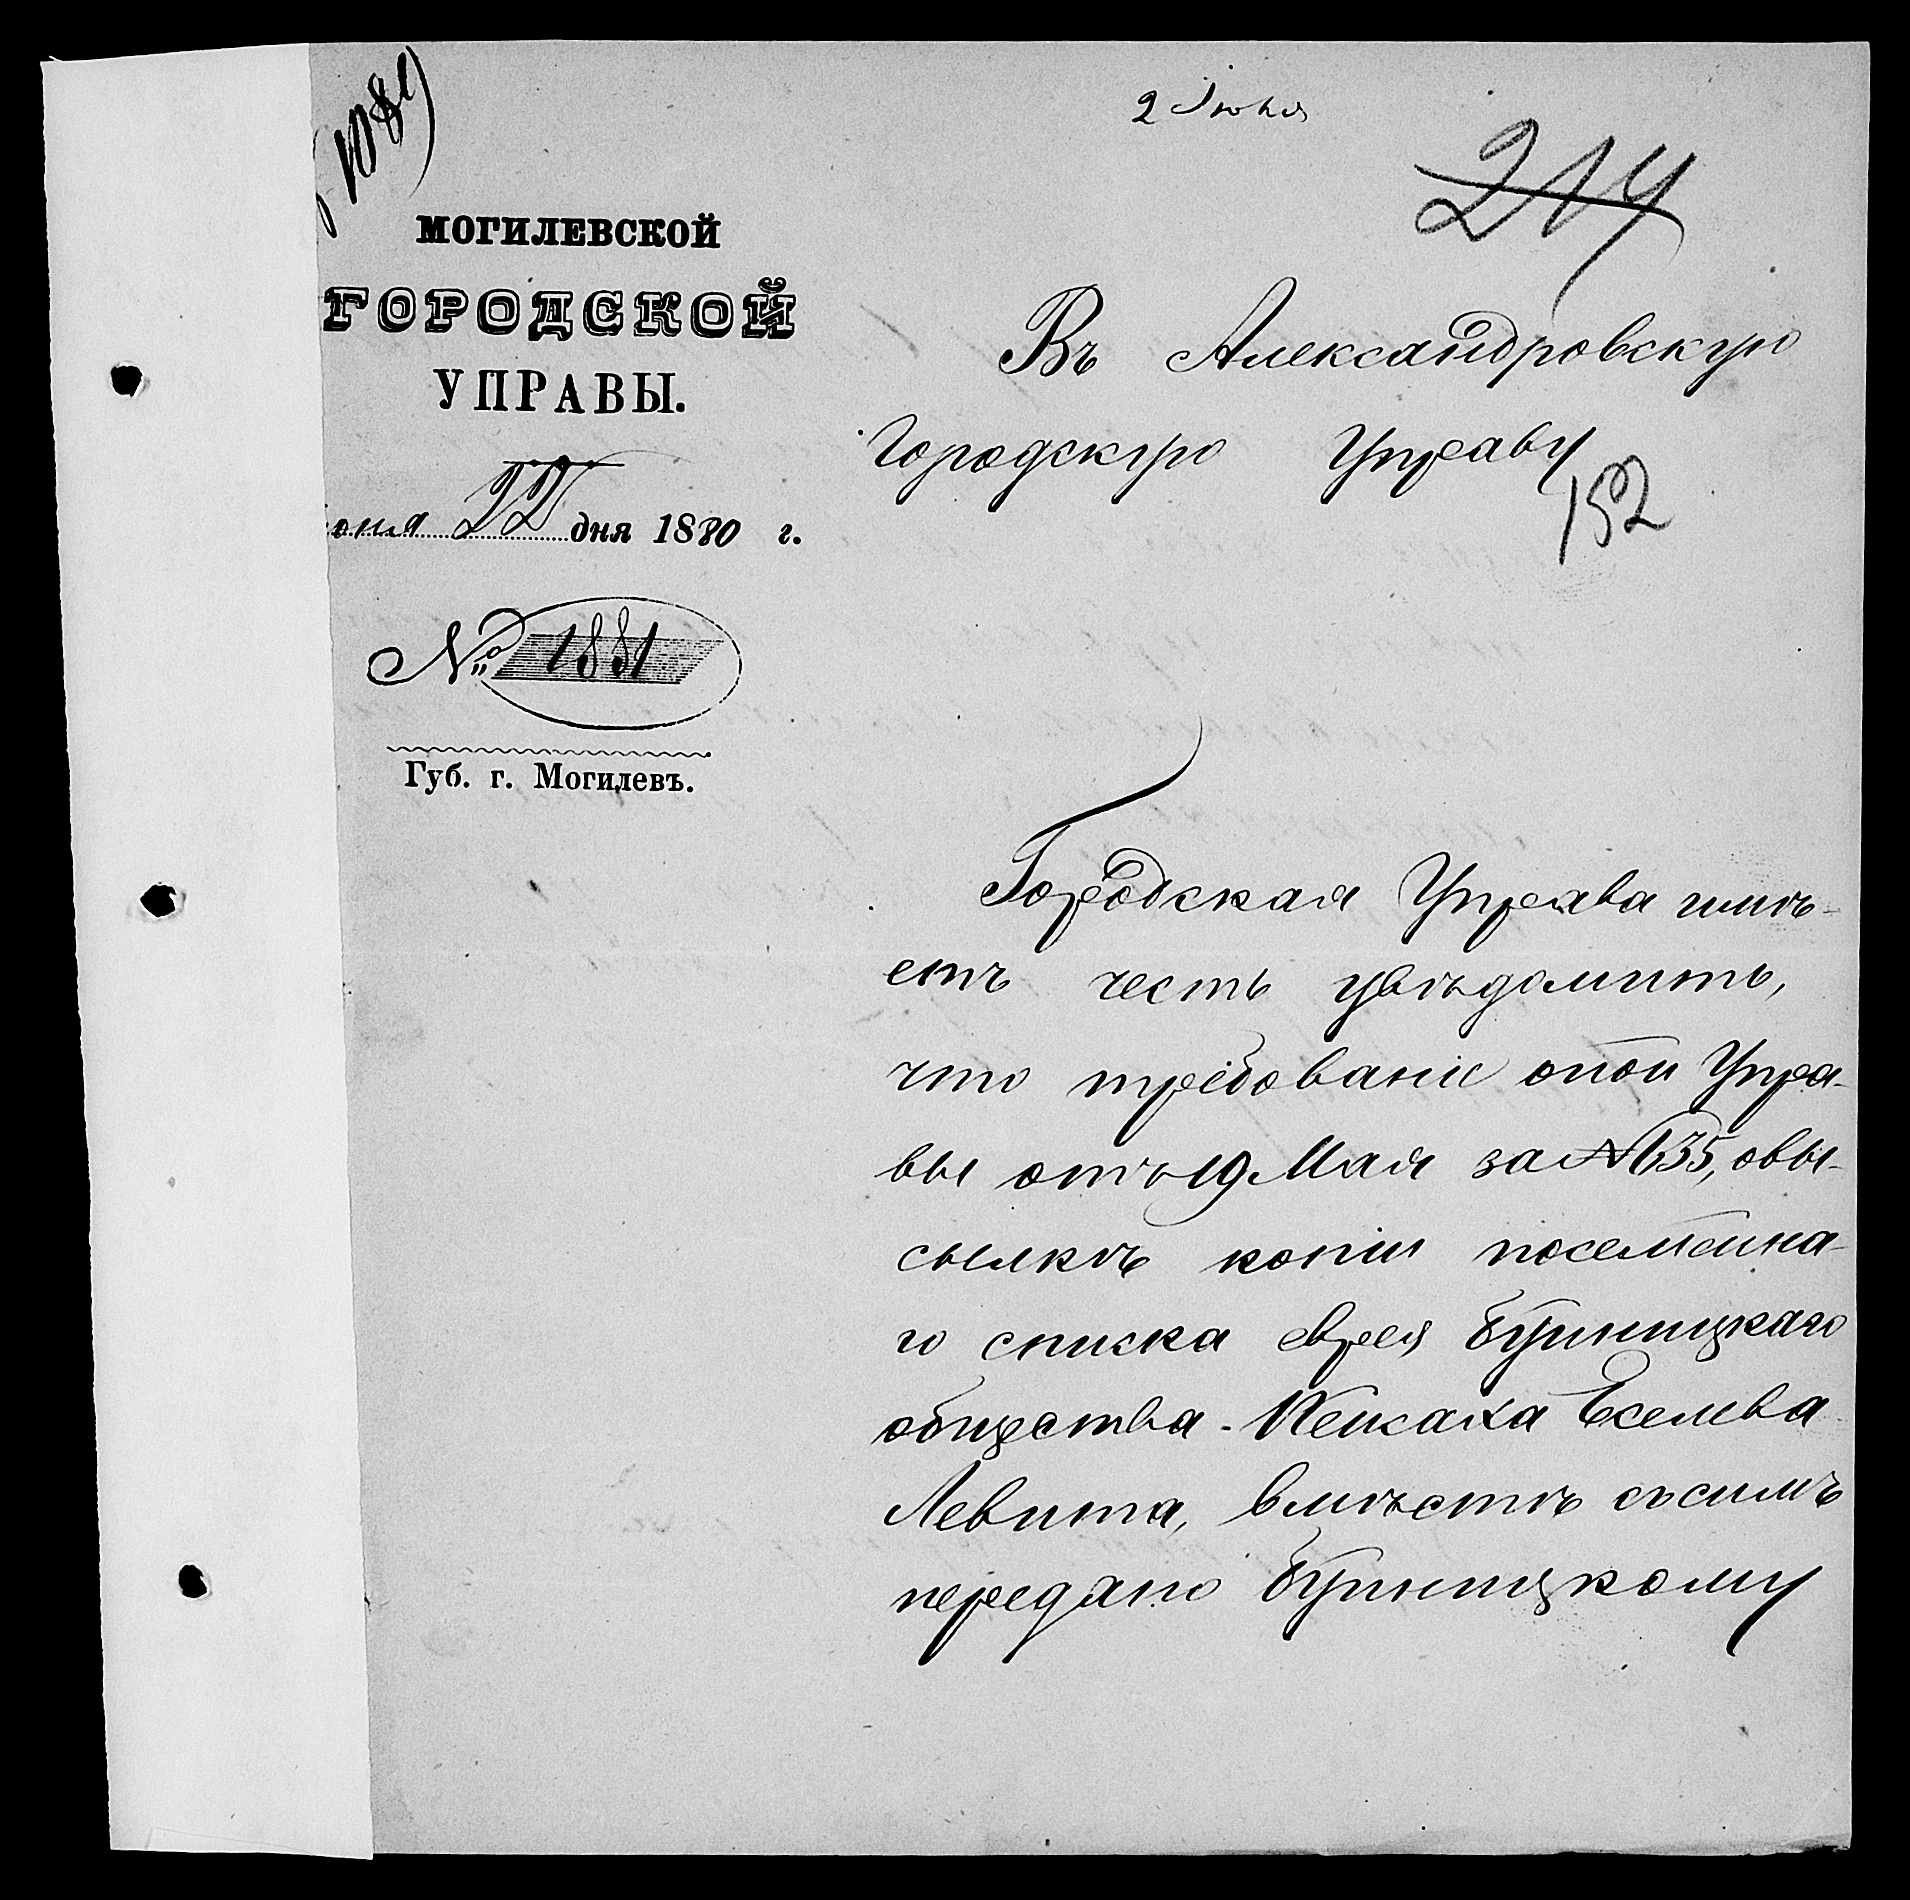 1089)
2 Июня
214
МОГИЛЕВСКОЙ
ГОРОДСКОЙ
УПРАВЫ.
юня 22 дня 1880 г.
№ 1881
Губ. г. Могилевъ.
Въ Александровскую
Городскую Управу
152
Городская Управа имѣ-
етъ честь увѣдомить,
что требованіе оной Упра-
вы отъ 19 Мая за № 635, о вы-
сылкѣ копіи посемейна-
го списка еврея Буйницкаго
общества - Левита, вмѣстѣ съ симъ
передано Буйницкому